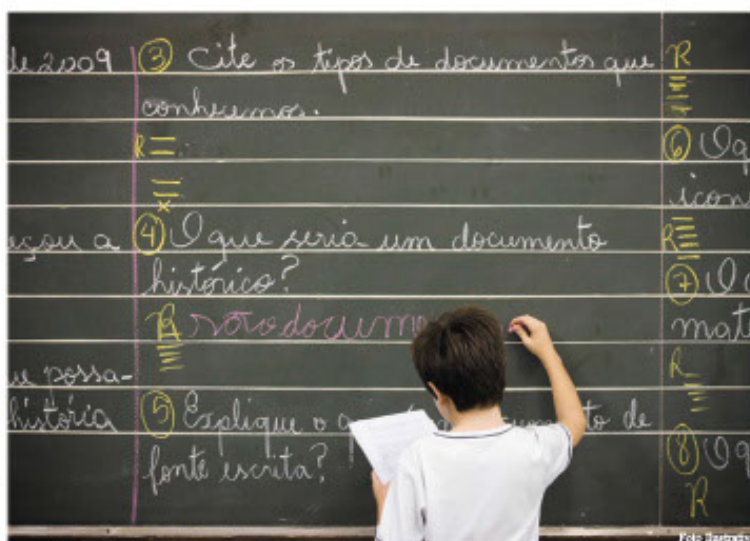 de 2009
eçou a
ue possa-
história
③ Cite os tipos de documentos que
conhecemos.
R
④ O que seria um documento
histórico?
R são docume
⑤ Explique o a to de
fonte escrita?
R
⑥ O q
icon
R
⑦ O
mat
R
⑧ O q
R
Foto Ilustrativa